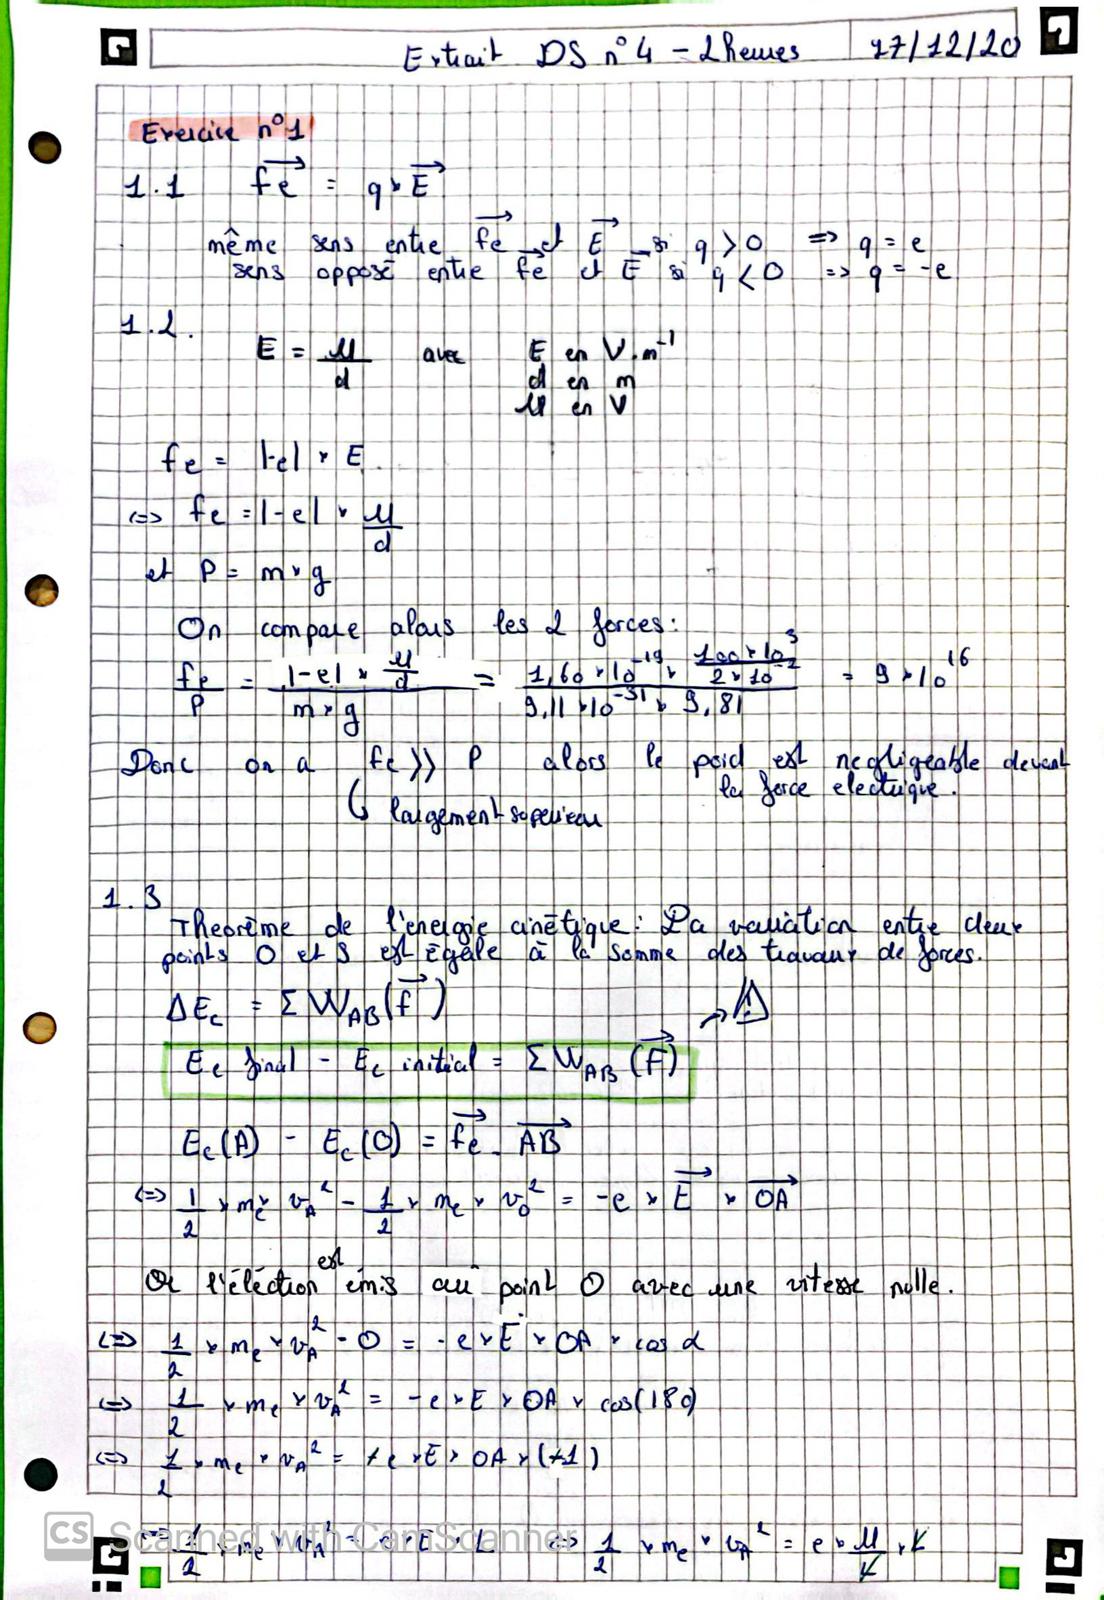 Extrait DS n°4 - 2 heures 17/12/20
Exercice n°1
1.1 fe = q × E
même sens entre fe et E si q > 0 => q = e
sens opposé entre fe et E si q < 0 => q = -e
1.2.
E = U/d avec E en V.m⁻¹
d en m
U en V
fe = |-e| × E
<=> fe = |-e| × U/d
et P = m × g
On compare alors les 2 forces :
fe/P = (|-e| × U/d)/(m × g) = (1,60 × 10⁻¹⁹ × (100 × 10³)/(2 × 10⁻²))/(9,11 × 10⁻³¹ × 9,81) = 9 × 10¹⁶
Donc on a fe >> P alors le poid est negligeable devant
la force electrique.
largement superieur
1.3
Theorème de l'energie cinétique : La variation entre deux
points O et S est égale à la somme des travaux de forces.
ΔEc = Σ W_AB(f)
!
Ec final - Ec initial = Σ W_AB (F)
Ec(A) - Ec(O) = fe . AB
<=> 1/2 × me × vA² - 1/2 × me × vO² = -e × E × OA
Or l'éléction est émis au point O avec une vitesse nulle.
<=> 1/2 × me × vA² - 0 = -e × E × OA × cos α
<=> 1/2 × me × vA² = -e × E × OA × cos(180)
<=> 1/2 × me × vA² = +e × E × OA × (+1)
<=> 1/2 × me × vA² = e × E × L <=> 1/2 × me × vA² = e × U/L × L
CS Scanned with CamScanner